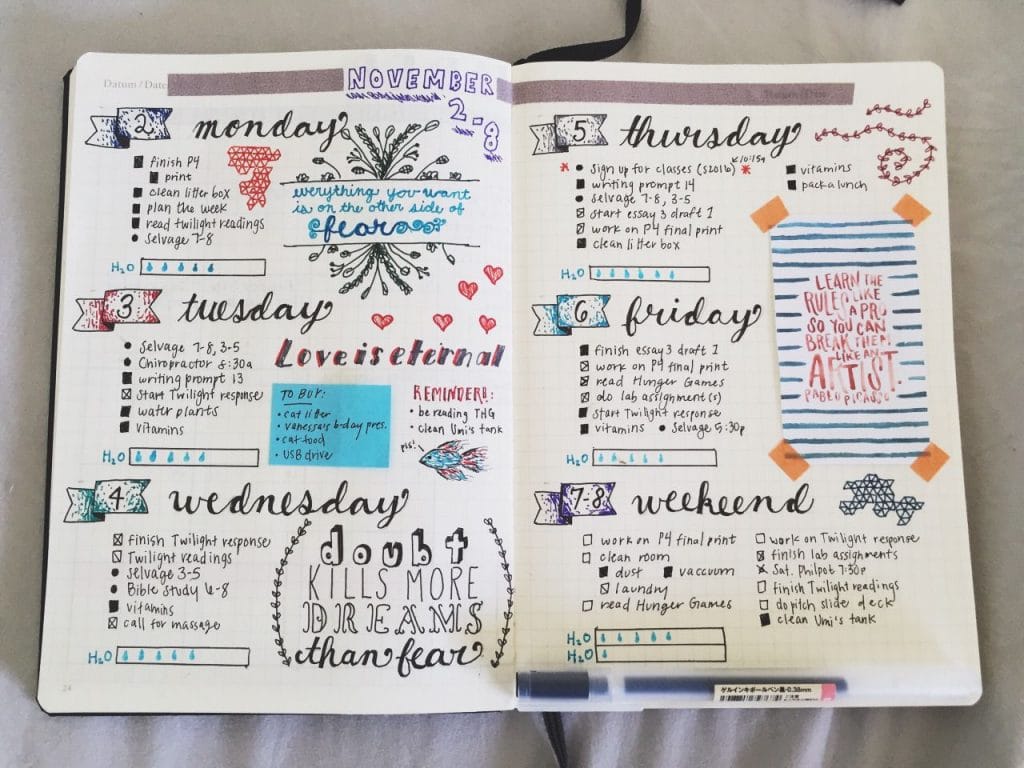 Datum / Date
NOVEMBER
2-8
2 monday
finish P4
print
clean litter box
plan the week
read twilight readings
Selvage 7-8
H2O
everything you want
is on the other side of
fear
3 tuesday
Selvage 7-8, 3-5
Chiropractor 8:30a
writing prompt 13
start Twilight response
water plants
vitamins
H2O
Love is eternal
TO BUY:
cat litter
vanessa's b-day pres.
cat food
USB drive
REMINDER!:
be reading THG
clean Umi's tank
pls!
4 wednesday
finish Twilight response
Twilight readings
Selvage 3-5
Bible study 6-8
vitamins
call for massage
H2O
doubt
KILLS MORE
DREAMS
than fear
24
5 thursday
sign up for classes (S2016) 10:15a
writing prompt 14
Selvage 7-8, 3-5
start essay 3 draft 1
work on P4 final print
clean litter box
vitamins
pack a lunch
H2O
6 friday
finish essay 3 draft 1
work on P4 final print
read Hunger Games
do lab assignment(s)
start Twilight response
vitamins Selvage 5:30p
H2O
LEARN THE
RULES LIKE
A PRO
SO YOU CAN
BREAK THEM
LIKE AN
ARTIST.
PABLO PICASSO
7-8 weekeend
work on P4 final print
clean room
dust vaccuum
laundry
read Hunger Games
work on Twilight response
finish lab assignments
Sat. Philpot 7:30p
finish Twilight readings
do pitch slide deck
clean Umi's tank
H2O
H2O
ゲルインキボールペン黒・0.38mm